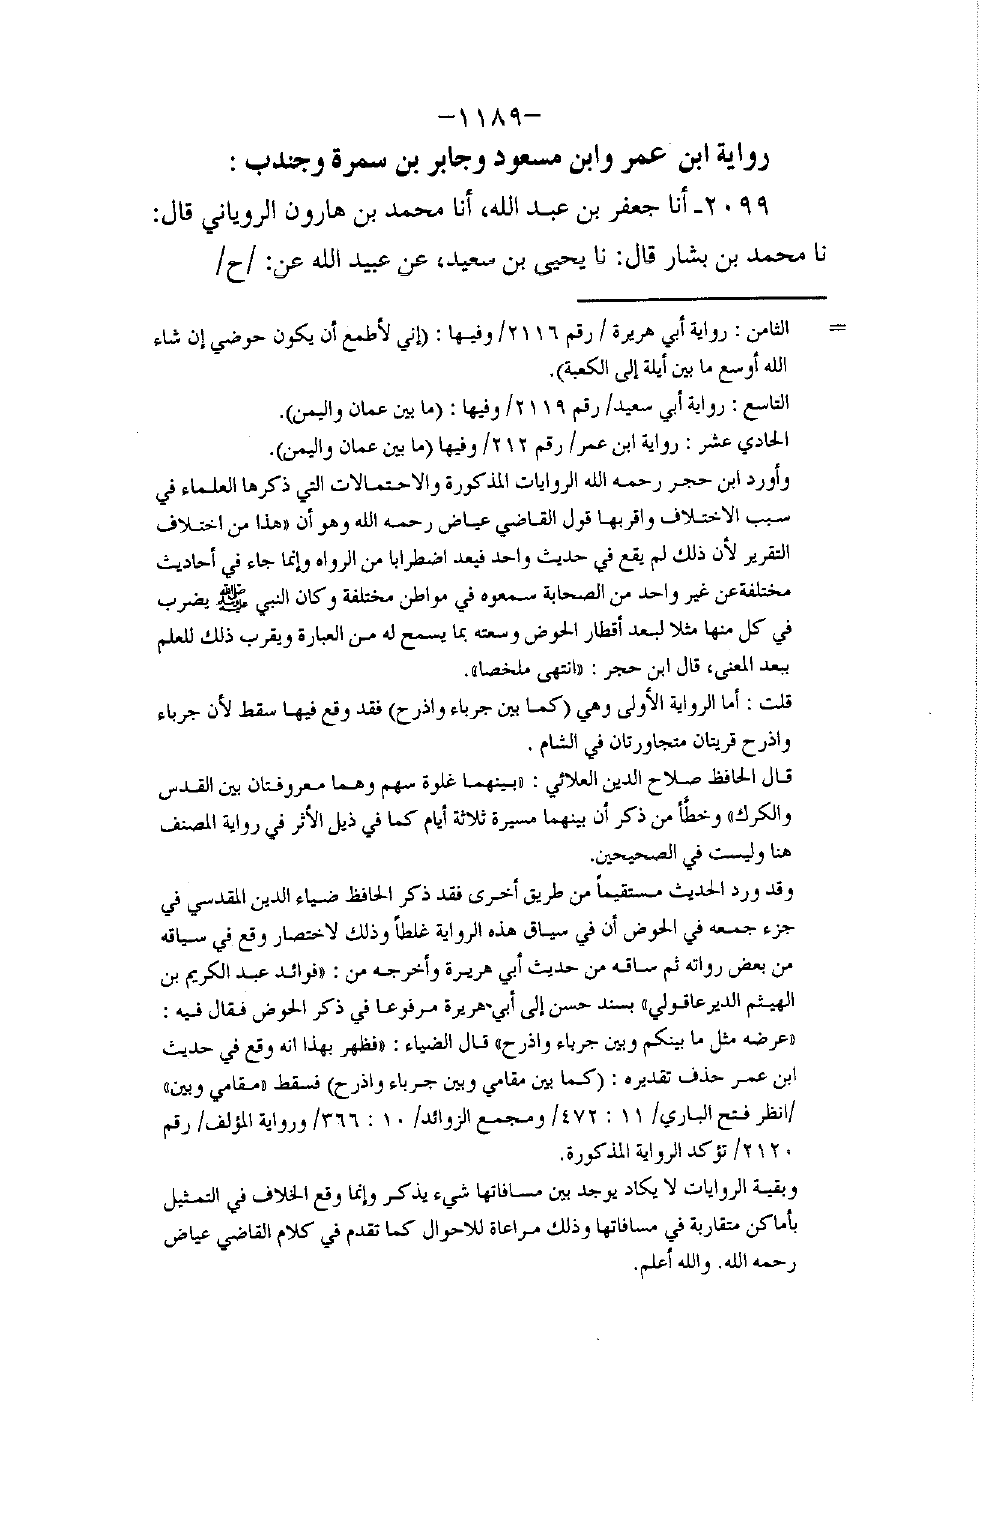 -١١٨٩-
رواية ابن عمر وابن مسعود وجابر بن سمرة وجندب :
٢٠٩٩- أنا جعفر بن عبد الله، أنا محمد بن هارون الروياني قال:
نا محمد بن بشار قال: نا يحيى بن سعيد، عن عبيد الله عن: /ح/
= الثامن : رواية أبي هريرة / رقم ٢١١٦/ وفيها : (إني لأطمع أن يكون حوضي إن شاء
الله أوسع ما بين أيلة إلى الكعبة).
التاسع : رواية أبي سعيد/ رقم ٢١١٩/ وفيها : (ما بين عمان واليمن).
الحادي عشر : رواية ابن عمر/ رقم ٢١٢/ وفيها (ما بين عمان واليمن).
وأورد ابن حجر رحمه الله الروايات المذكورة والاحتمالات التي ذكرها العلماء في
سبب الاختلاف واقربها قول القاضي عياض رحمه الله وهو أن «هذا من اختلاف
التقرير لأن ذلك لم يقع في حديث واحد فيعد اضطرابا من الرواه وإنما جاء في أحاديث
مختلفة عن غير واحد من الصحابة سمعوه في مواطن مختلفة وكان النبي ﷺ يضرب
في كل منها مثلا لبعد أقطار الحوض وسعته بما يسمح له من العبارة ويقرب ذلك للعلم
ببعد المعنى، قال ابن حجر : «انتهى ملخصا».
قلت : أما الرواية الأولى وهي (كما بين جرباء واذرح) فقد وقع فيها سقط لأن جرباء
واذرح قريتان متجاورتان في الشام .
قال الحافظ صلاح الدين العلائي : «بينهما غلوة سهم وهما معروفتان بين القدس
والكرك» وخطأ من ذكر أن بينهما مسيرة ثلاثة أيام كما في ذيل الأثر في رواية المصنف
هنا وليست في الصحيحين.
وقد ورد الحديث مستقيماً من طريق أخرى فقد ذكر الحافظ ضياء الدين المقدسي في
جزء جمعه في الحوض أن في سياق هذه الرواية غلطاً وذلك لاختصار وقع في سياقه
من بعض رواته ثم ساقه من حديث أبي هريرة وأخرجه من : «فوائد عبد الكريم بن
الهيثم الديرعاقولي» بسند حسن إلى أبي هريرة مرفوعا في ذكر الحوض فقال فيه :
«عرضه مثل ما بينكم وبين جرباء واذرح» قال الضياء : «فظهر بهذا انه وقع في حديث
ابن عمر حذف تقديره : (كما بين مقامي وبين جرباء واذرح) فسقط «مقامي وبين»
/انظر فتح الباري/ ١١ : ٤٧٢/ ومجمع الزوائد/ ١٠ : ٣٦٦/ ورواية المؤلف/ رقم
٢١٢٠/ تؤكد الرواية المذكورة.
وبقية الروايات لا يكاد يوجد بين مسافاتها شيء يذكر وإنما وقع الخلاف في التمثيل
بأماكن متقاربة في مسافاتها وذلك مراعاة للاحوال كما تقدم في كلام القاضي عياض
رحمه الله. والله أعلم.